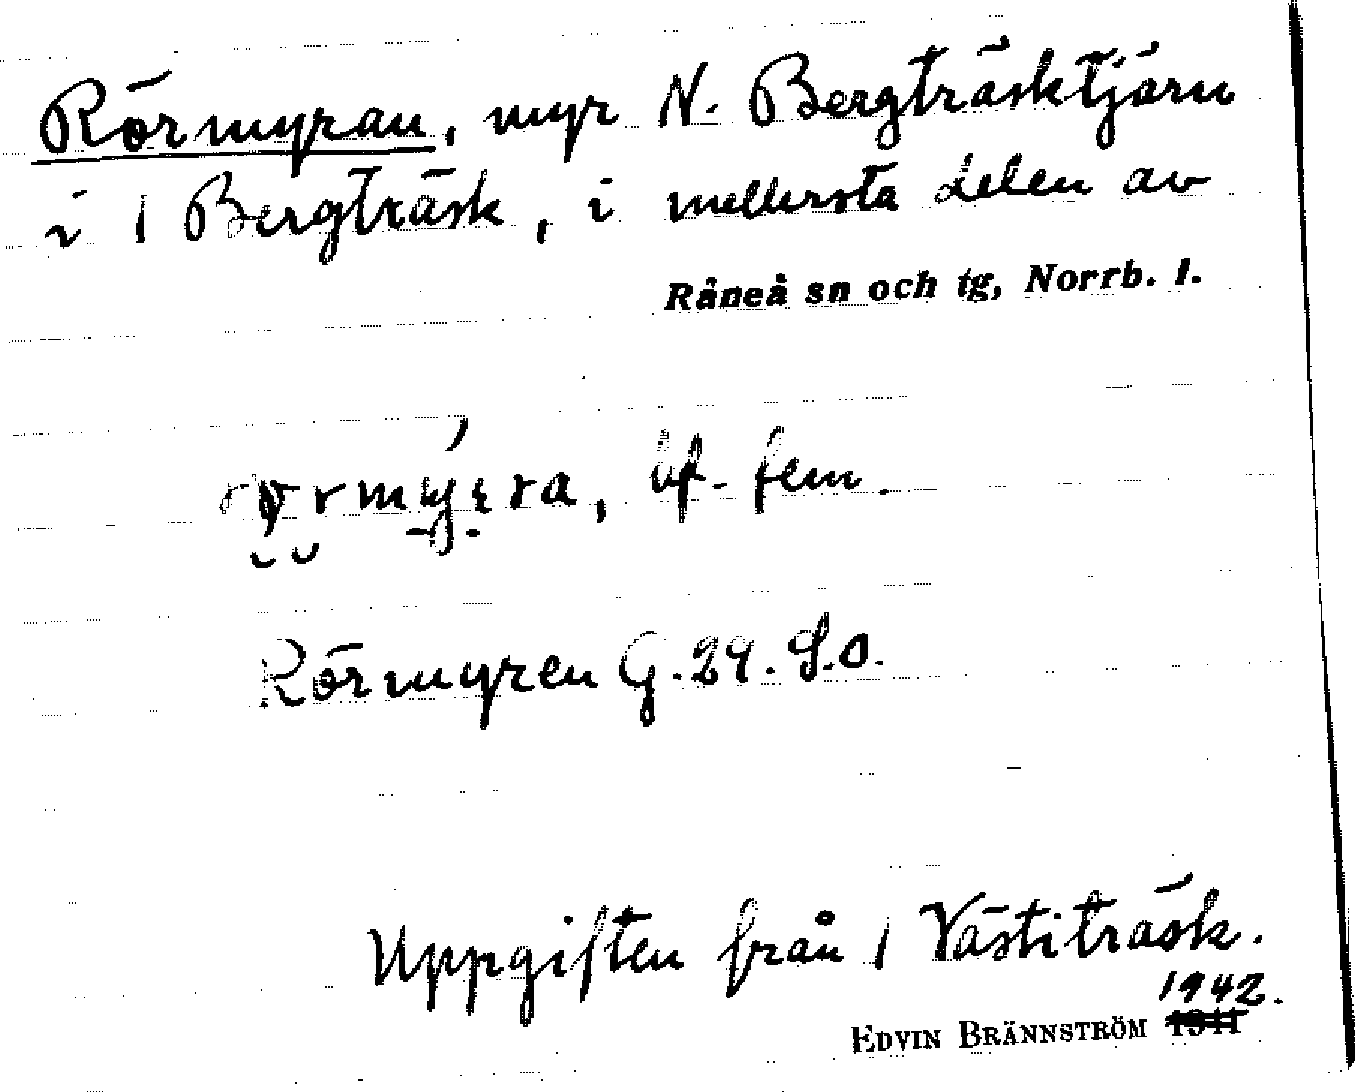 Rörmyran, myr N. Bergträsktjärn
i 1 Bergträsk, i mellersta delen av
Råneå sn och tg, Norrb. l.
bf. fem.
Rörmyren G. 29. S.O.
Uppgiften från 1 Västiträsk.
1942.
EDVIN BRÄNNSTRÖM 1941